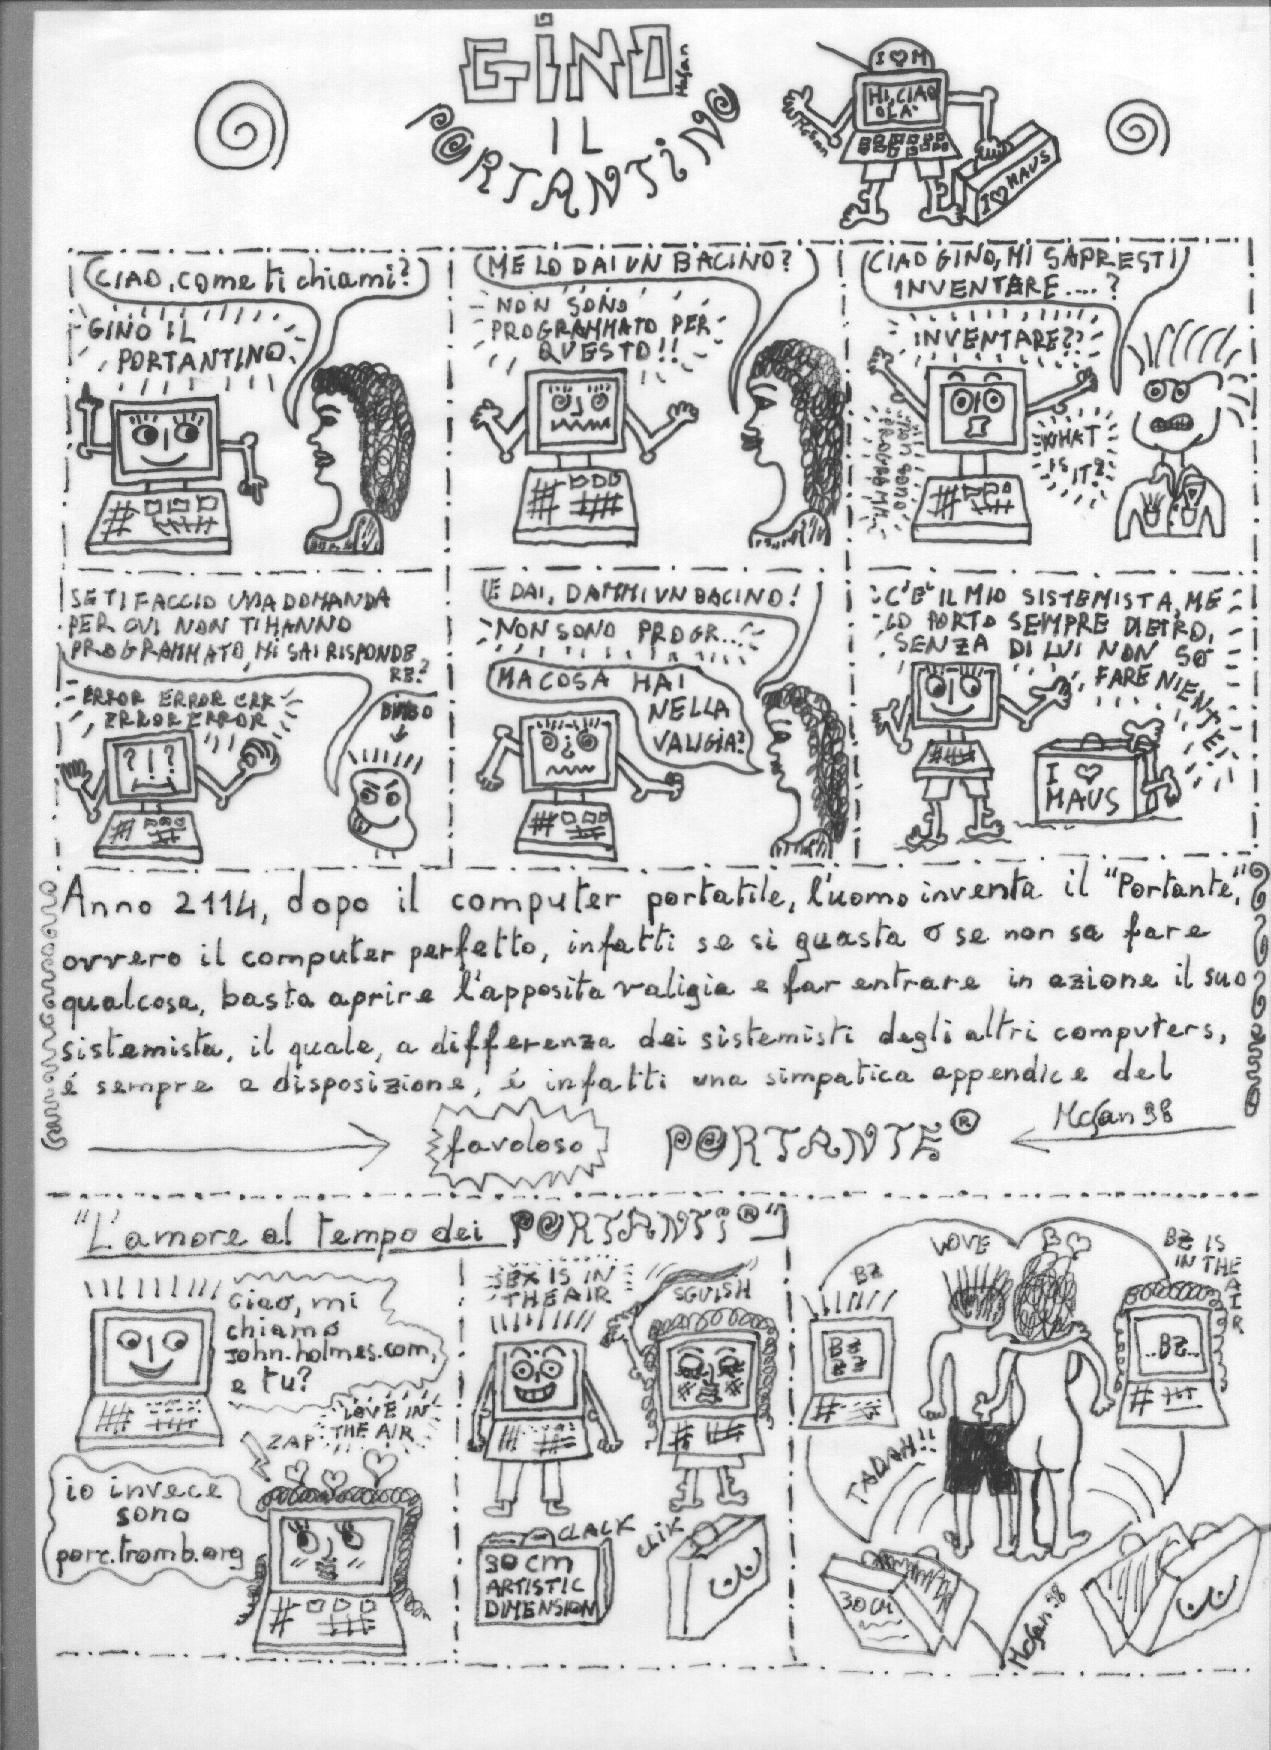 GINO
McGan
IL
PORTANTINO
I ♡ M
HI, CIAO
OLA'
McGan
I ♡ MAUS
CIAO, come ti chiami?
GINO IL
PORTANTINO
ME LO DAI UN BACINO?
NON SONO
PROGRAMMATO PER
QUESTO!!
CIAO GINO, MI SAPRESTI
INVENTARE....?
INVENTARE??
NON SONO
PROGRAMM..
WHAT
IS
IT?
SE TI FACCIO UNA DOMANDA
PER CUI NON TI HANNO
PROGRAMMATO, MI SAI RISPONDE
RE?
ERROR ERROR ERR
ERROR ERROR
? ! ?
BIMBO
E DAI, DAMMI UN BACINO!
NON SONO PROGR...
MA COSA HAI
NELLA
VALIGIA?
C'E' IL MIO SISTEMISTA, ME
LO PORTO SEMPRE DIETRO,
SENZA DI LUI NON SO
FARE NIENTE!
I ♡
MAUS
Anno 2114, dopo il computer portatile, l'uomo inventa il "Portante",
ovvero il computer perfetto, infatti se si guasta o se non sa fare
qualcosa, basta aprire l'apposita valigia e far entrare in azione il suo
sistemista, il quale, a differenza dei sistemisti degli altri computers,
é sempre a disposizione, é infatti una simpatica appendice del
favoloso PORTANTE® McGan 98
"L'amore al tempo dei PORTANTI®"
Ciao, mi
chiamo
John.holmes.com,
e tu?
LOVE IN
THE AIR
ZAP
io invece
sono
porc.tromb.org
SEX IS IN
THE AIR
SGUISH
CLACK
CLIK
30 CM
ARTISTIC
DIMENSION
WOVE
BZ
BZ
ZZ
BZ IS
IN THE
AIR
..BZ..
TADAH!!
30 CM
McGan 98